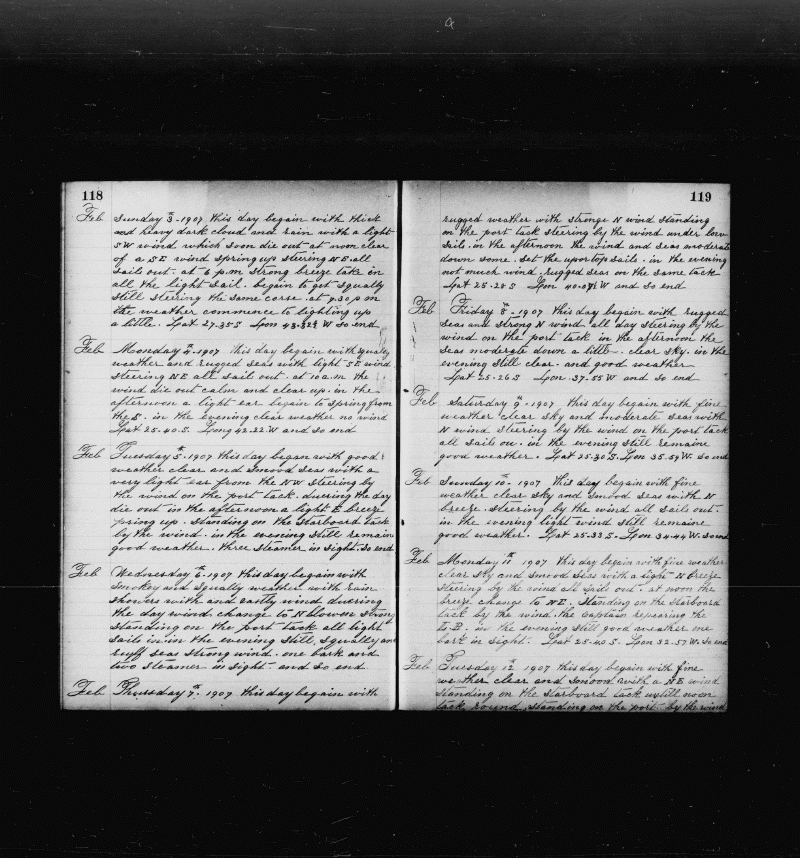 118
Feb Sunday 3th 1907 this day begain with thick
and heavy dark cloud and rain with a light
SW wind which soon die out at noon clear
of a SE wind spring up steering NE all
sails out. at 6 p.m strong breeze take in
all the light sail. begain to get squally
still steering the same corse. at 7.30 pm
the weather commence to lighting up
a little. Lat 27.35 S Lon W so end
Feb Monday 4th 1907 this day begain with squally
weather and rugged seas with light SE wind
steering NE all sail out. at 10 a.m the
wind die out calm and clear up. in the
afternoon a light ear begain to spring from
the S. in the evening clear weather no wind
Lat 25.40.S. Long 42.22 W and so end
Feb Tuesday 5th 1907 this day began with good
weather clear and smood seas with a
very light ear from the NW steering by
the wind on the port tack. duering the day
die out in the afternoon a light E breeze
pring up. standing on the starboard tack
by the wind. in the evening still remain
good weather. three steamer in sight. so end
Feb Wednesday 6th 1907 this day begain with
smokey and squally weather with rain
showers with and eastly wind duering
the day wind change to N blowen strong
standing on the port tack all light
sails in. in the evening still squally an
seas strong wind. one bark and
two steamer in sight. and so end
Feb Thursday 7th 1907 this day begain with
119
rugged weather with stronge N wind standing
on the port tack steering by the wind under low
sail. in the afternoon the wind and seas moderate
down some. set the upor top sails. in the evening
not much wind. rugged seas on the same tack
Lat 25.28 S Lon W and so end
Feb Friday 8th 1907 this day begain with rugged
seas and strong N wind all day steering by the
wind on the port tack in the afternoon the
seas moderate down a little. clear sky. in the
evening still clear and good weather
Lat 25.26 S Lon. 37.55 W and so end
Feb Saturday 9th 1907 this day begain with fine
weather clear sky and moderate seas with
N wind steering by the wind on the port tack
all sails ou. in the evening still remaine
good weather. Lat 25.30 S. Lon 35.59 W. so end
Feb Sunday 10th 1907 this day begain with fine
weather clear sky and smood seas with N
breeze. steering by the wind all sails out.
in the evening light wind still remaine
good weather. Lat 25.33 S. Lon 34.44 W. so end
Feb Monday 11th 1907 this day begain with fine weather
clear sky and smood seas with a light N breeze
steering by the wind all sails out. at noon the
breeze change to NE. standing on the starboard
tack by the wind. the captain repearing the
in the evening still good weather one
bark in sight. Lat 25.40 S. Lon 32.57 W. so end
Feb Tuesday 12th 1907 this day begain with fine
weather clear and smood with a NE wind
standing on the starboard tack untill noon
tack round. standing on the port by the wind